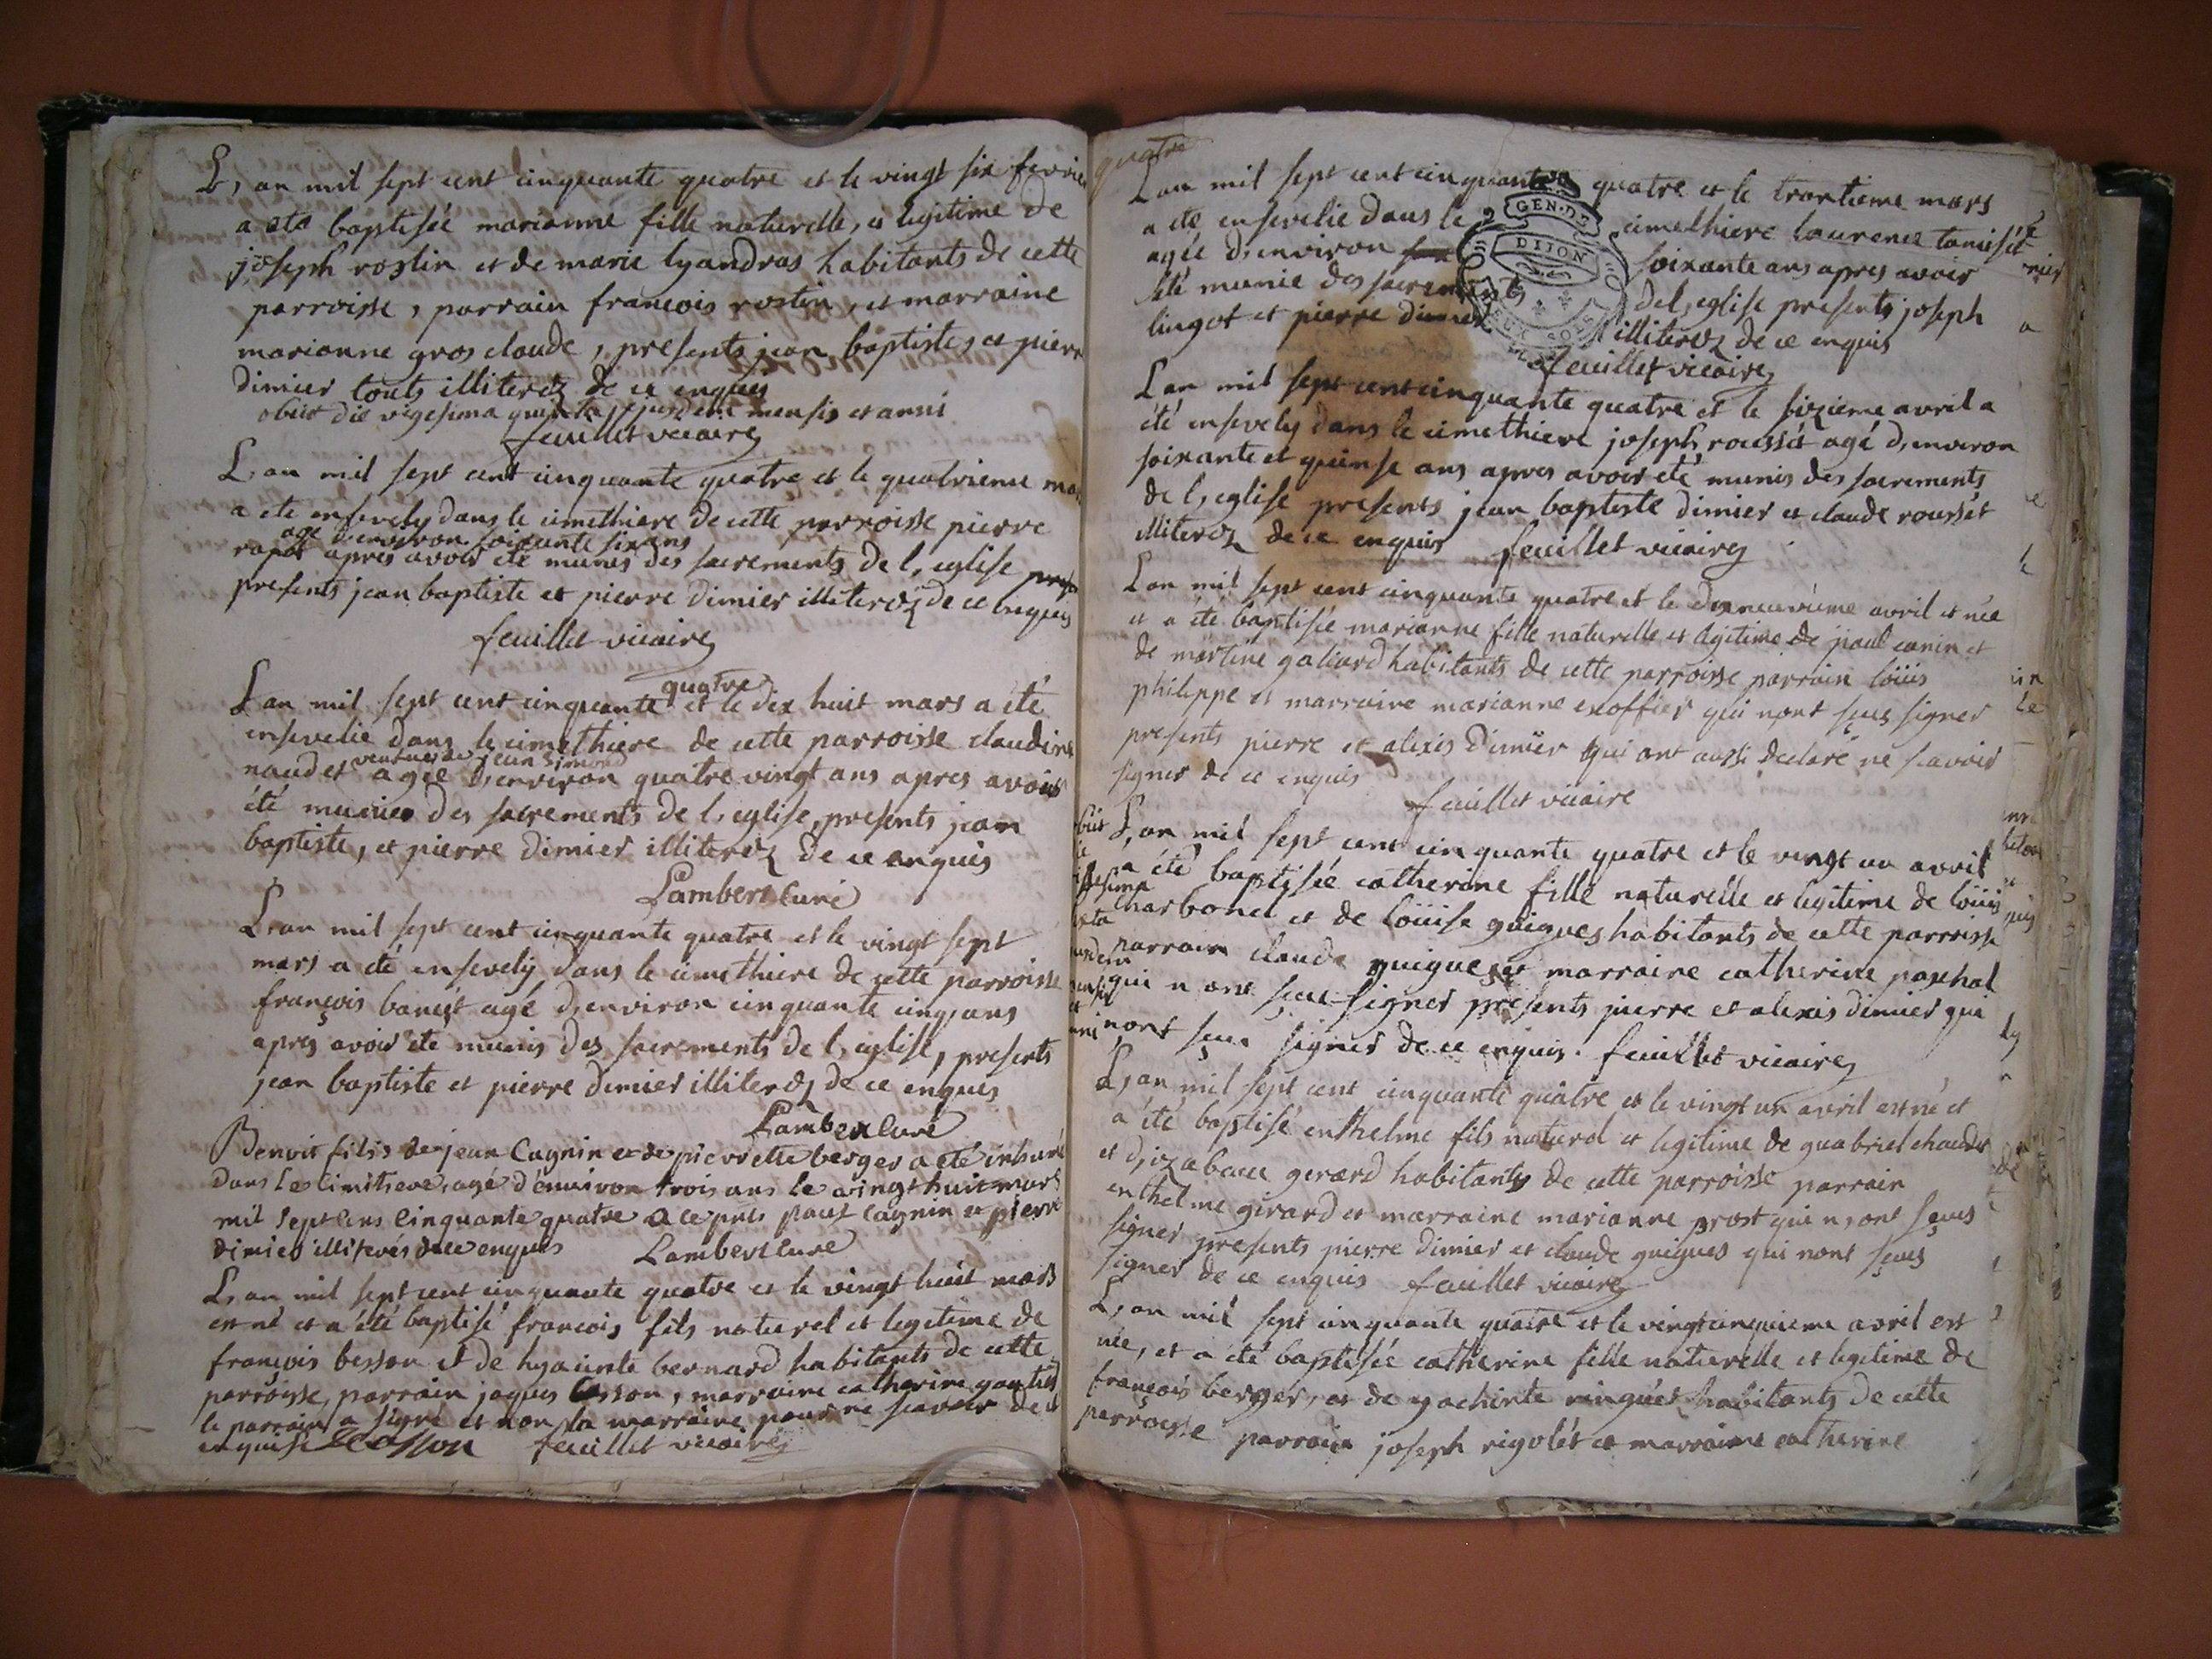 L, an mil sept cent cinquante quatre et le vingt six fevrier
a eté baptisée marianne fille naturelle, et legitime de
joseph rostin et de marie lyandras habitants de cette
parroisse, parrain francois rostin, et marraine
marianne gros claude, presents jean baptiste, et pierre
dimier touts illiterez de ce enques
obiit die vigesima quinta ejusdem mensis et anni
feuillet vicaire
L, an mil sept cent cinquante quatre et le quatrieme mars
a eté ensevely dans le cimethiere de cette parroisse pierre
agé d'environ soixante six ans
rapot apres avoir eté munis des sacrements de l, eglise
presents jean baptiste et pierre dimier illiterez de ce enques
feuillet vicaire
quatre
L'an mil sept cent cinquante et le dix huit mars a été
ensevelie dans le cimethiere de cette parroisse claudine
veufve de jean simond
naudet agée d, environ quatre vingt ans apres avoir
été munies des sacrements de l, eglise, presents jean
baptiste, et pierre dimier illiterez de ce enquis
Lambert Curé
L, an mil sept cent cinquante quatre et le vingt sept
mars a été ensevely dans le cimethiere de cette parroisse
françois banet agé d, environ cinquante cinq, ans
apres avoir eté munis des sacrements de l, eglise, presents
jean baptiste et pierre dimier illiterez de ce enques
Lambert Curé
Benoit filis de jean Cagnin et de pierrette berger a eté inhumé
dans le cimitiere, agé d'environ trois ans le vingt huit mars
mil sept cens cinquante quatre a ce pnts paul cagnin et pierre
dimier illiterés de ce enques Lambert Cure
L, an mil sept cent cinquante quatre et le vingt huit mars
est né et a été baptisé francois fils naturel et legitime de
françois besson et de hyacinte bernard habitants de cette
parroisse, parrain jaques Cosson, marraine catherine
le parrain a signé et non la marraine pour ne scavoir de ce
enquise Cosson feuillet vicaire
quatre
L'an mil sept cent cinquante quatre et le trantieme mars
a eté ensevelie dans le cimethiere laurence tamisét
agée d, environ soixante ans apres avoir
été munie des sacrements de l, eglise presents joseph
lingot et pierre dimier illiterez de ce enquis
feuillet vicaire
GEN. DE
DIJON
L'an mil sept cent cinquante quatre et le sizieme avril a
été ensevely dans le cimethiere joseph roussét agé d, environ
soixante et quinse ans apres avoir eté munis des sacrements
de l, eglise presents jean baptiste dimier et claude roussét
illiterez de ce enquis feuillet vicaire
L'an mil sept cent cinquante quatre et le dixneuvieme avril et née
et a été baptisée marianne fille naturelle et legitime de paul canin et
de martine galiard habitants de cette parroisse parrain loüis
philippe et marraine marianne exoffier qui nont sçus signer
presents pierre et alexis dimier qui ont aussi declaré ne scavoir
signer de ce enquis
feuillet vicaire
L, an mil sept cent cinquante quatre et le vingt un avril
a été baptisée catherine fille naturelle et legitime de loüis
charbonel et de loüise guigues habitants de cette parroisse
parrain claude guigues et marraine catherine paschal
qui n ont sçu signer presents pierre et alexis dimier qui
nont sçus signer de ce enquis. feuillet vicaire
L, an mil sept cent cinquante quatre et le vingt un avril est né et
a été baptisé enthelme fils naturel et legitime de guabriel chaudet
et d, izabaue gerard habitants de cette parroisse parrain
enthelme girard et marraine marianne prost qui n, ont sçeus
signer presents pierre dimier et claude guigues qui nont sçeus
signer de ce enquis feuillet vicaire
L, an mil sept cinquante quatre et le vingtcinquieme avril est
née, et a été baptisée catherine fille naturelle et legitime de
françois berger, et de yachinte ringuet habitants de cette
parroisse parrain joseph rigolét et marraine catherine